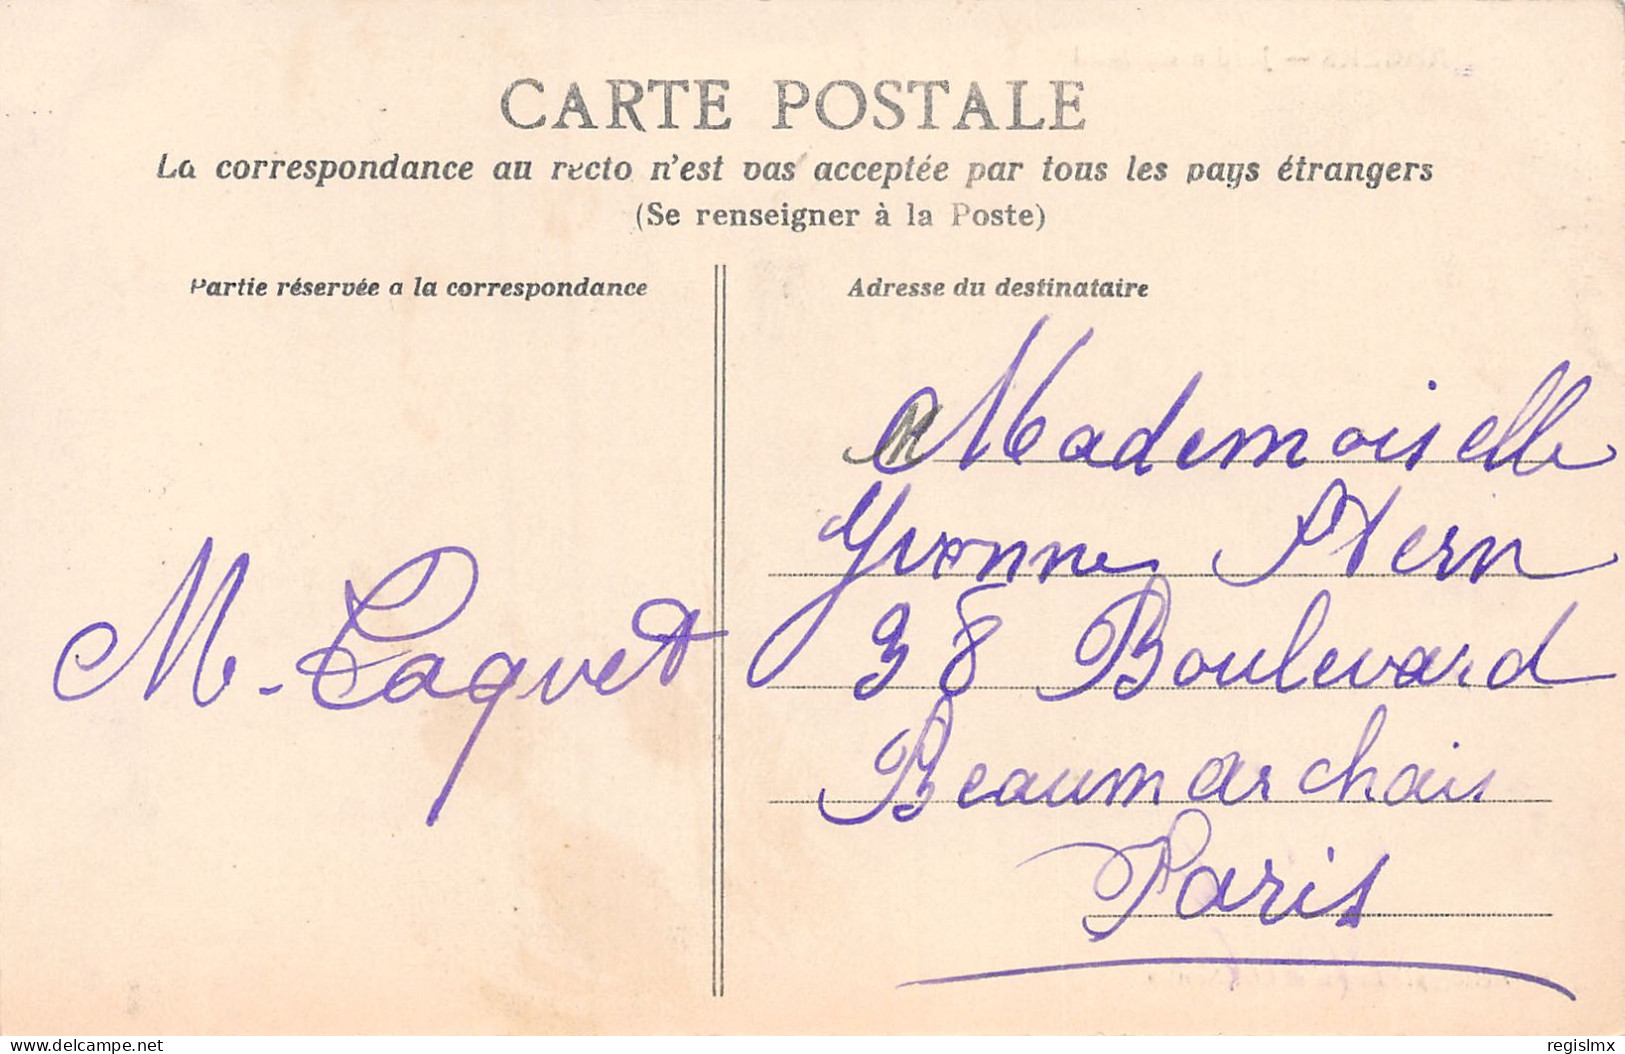 CARTE POSTALE
La correspondance au recto n'est pas acceptée par tous les pays étrangers
(Se renseigner à la Poste)
Partie réservée a la correspondance
Adresse du destinataire
M. Paquet
Mademoiselle
Yvonne Stern
38 Boulevard
Beaumarchais
Paris
delcampe.net
regislmx